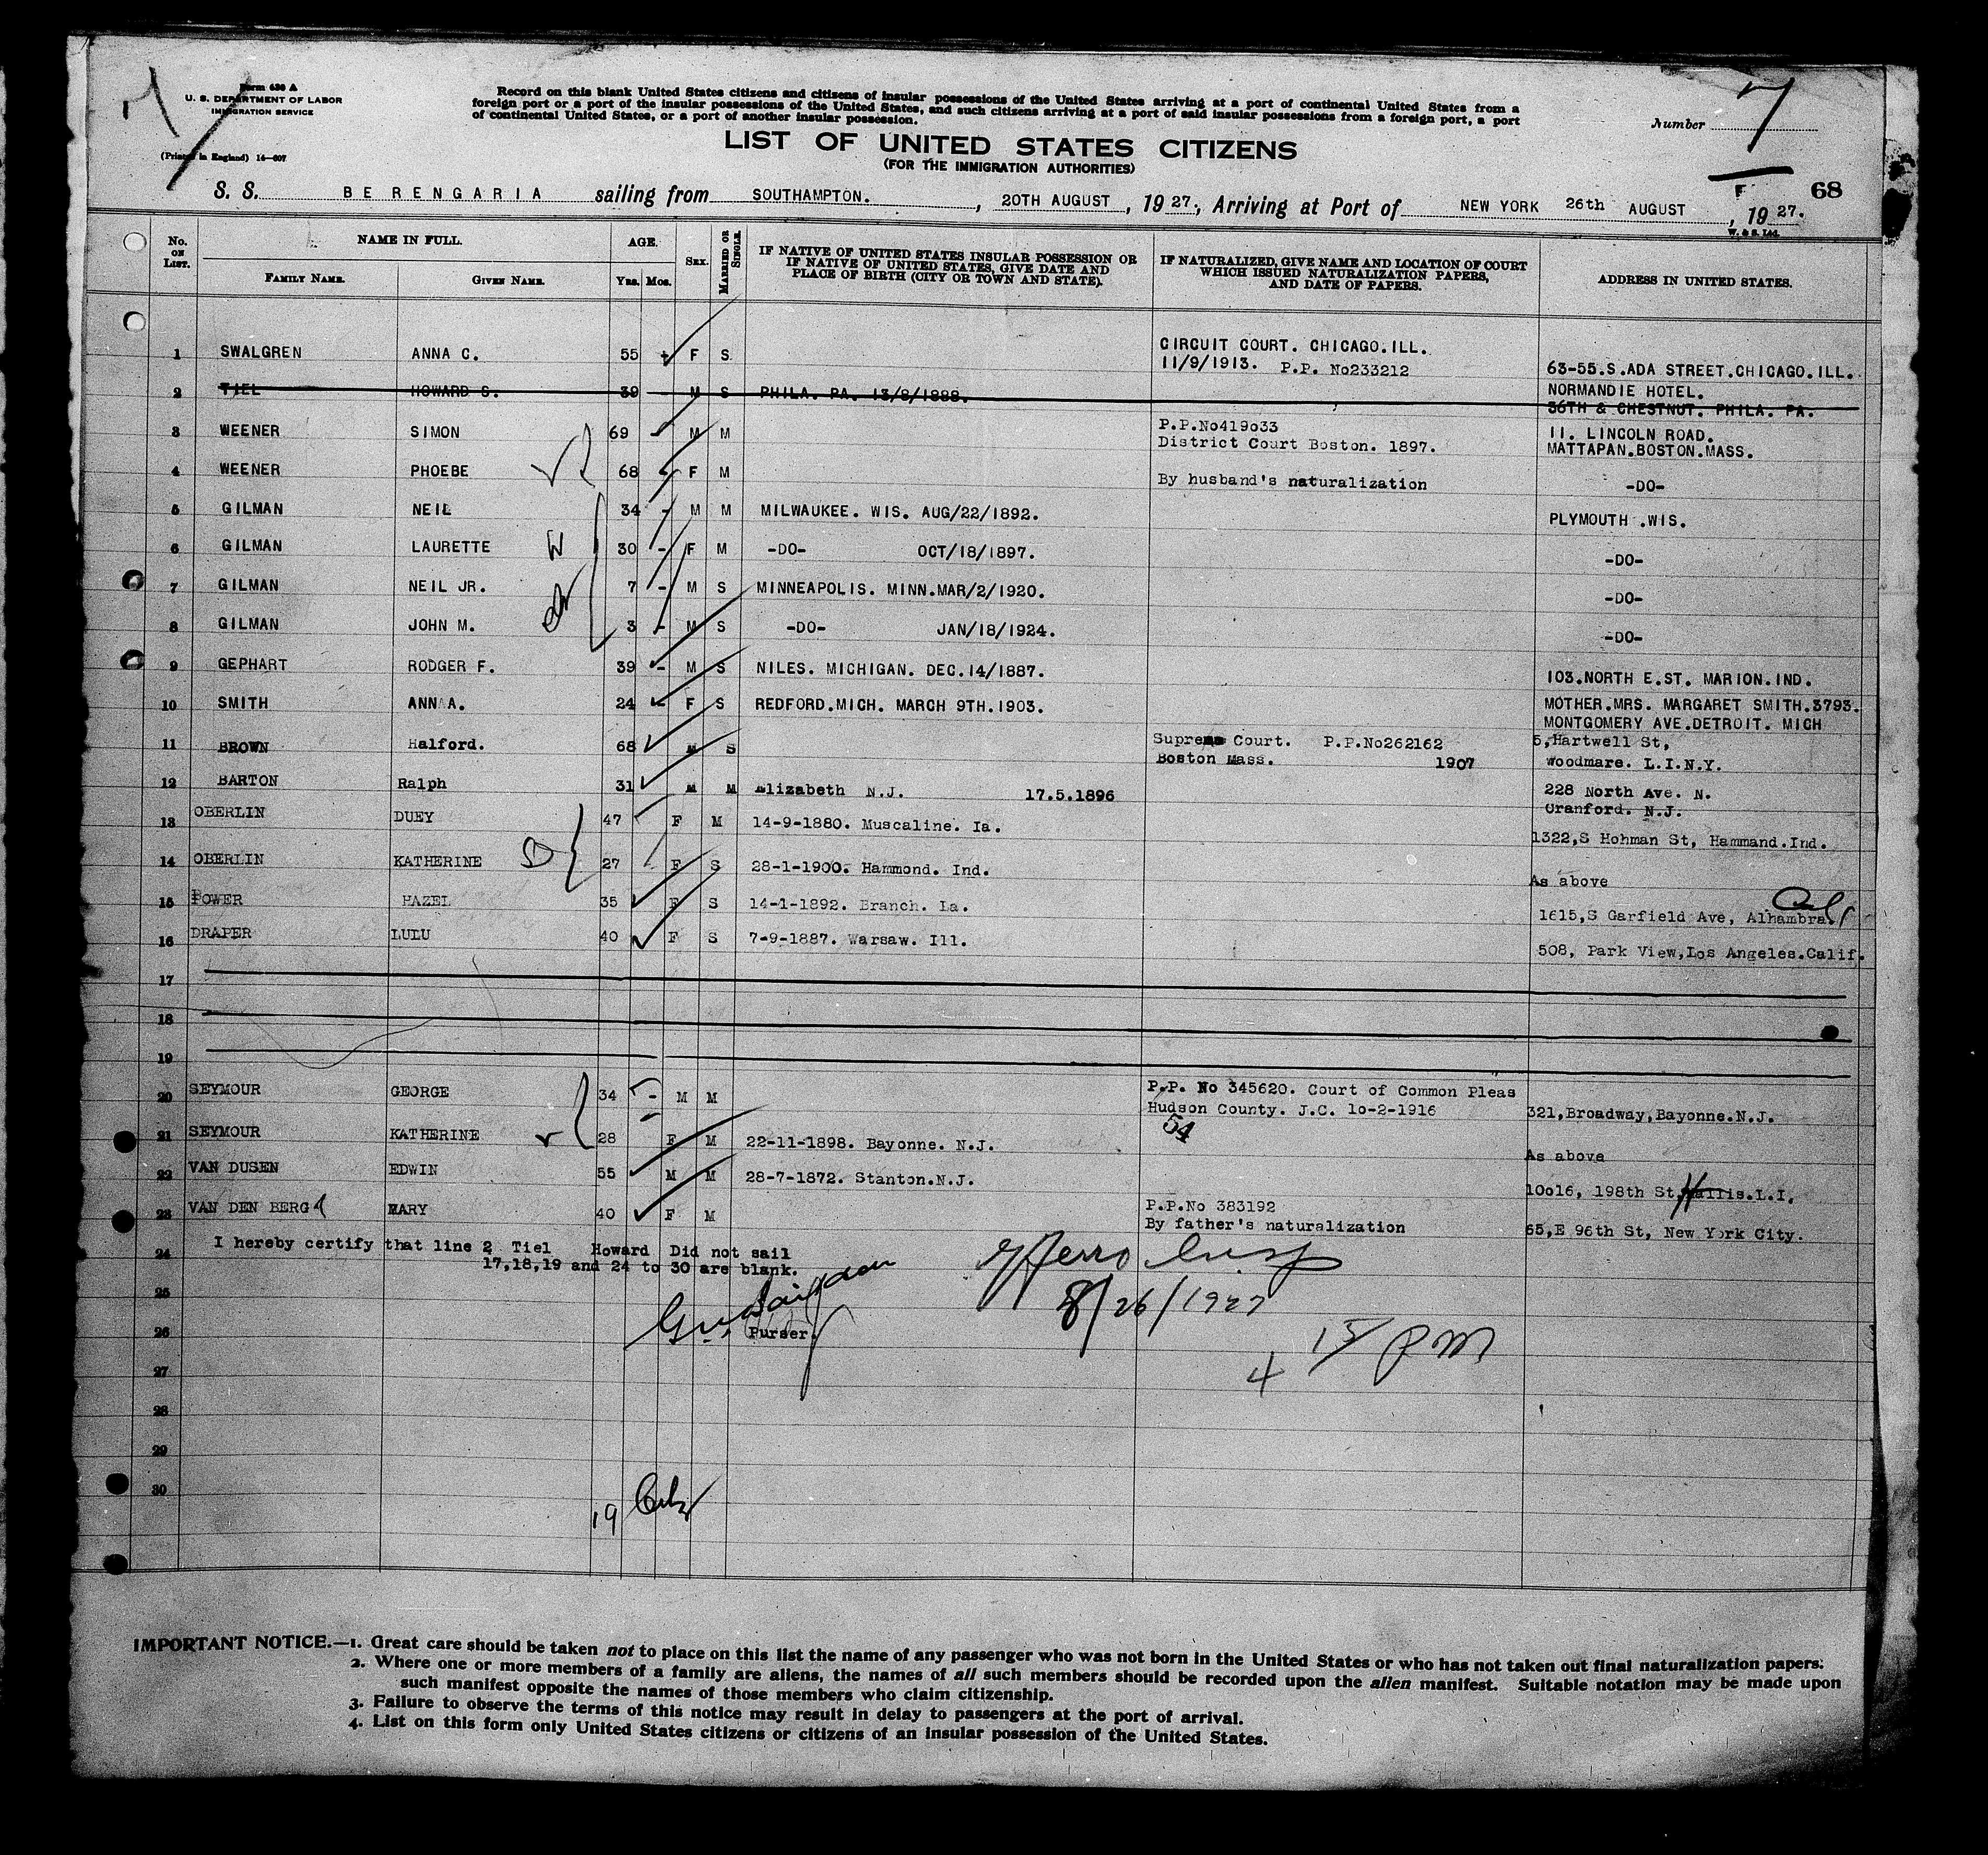 Form 630 A
U. S. DEPARTMENT OF LABOR
IMMIGRATION SERVICE
(Printed in England) 14—607
Record on this blank United States citizens and citizens of insular possessions of the United States arriving at a port of continental United States from a
foreign port or a port of the insular possessions of the United States, and such citizens arriving at a port of said insular possessions from a foreign port, a port
of continental United States, or a port of another insular possession.
Number 7
LIST OF UNITED STATES CITIZENS
(FOR THE IMMIGRATION AUTHORITIES)
68
S. S. BERENGARIA sailing from SOUTHAMPTON. , 20TH AUGUST , 19 27., Arriving at Port of NEW YORK 26th AUGUST , 19 27.
W. & S. Ltd.
No. ON LIST. NAME IN FULL. FAMILY NAME. GIVEN NAME. AGE. YRS. MOS. SEX. MARRIED OR SINGLE. IF NATIVE OF UNITED STATES INSULAR POSSESSION OR IF NATIVE OF UNITED STATES, GIVE DATE AND PLACE OF BIRTH (CITY OR TOWN AND STATE). IF NATURALIZED, GIVE NAME AND LOCATION OF COURT WHICH ISSUED NATURALIZATION PAPERS, AND DATE OF PAPERS. ADDRESS IN UNITED STATES.
1 SWALGREN ANNA C. 55 F S. CIRCUIT COURT. CHICAGO.ILL. 11/9/1913. P.P. No233212 63-55.S.ADA STREET.CHICAGO.ILL.
2 TIEL HOWARD S. 39 M S PHILA. PA. 13/8/1888. NORMANDIE HOTEL. 36TH & CHESTNUT. PHILA. PA.
3 WEENER SIMON 69 M M P.P.No419o33 District Court Boston. 1897. 11. LINCOLN ROAD. MATTAPAN.BOSTON.MASS.
4 WEENER PHOEBE 68 F M By husband's naturalization -DO-
5 GILMAN NEIL 34 - M M MILWAUKEE. WIS. AUG/22/1892. PLYMOUTH .WIS.
6 GILMAN LAURETTE 30 - F M -DO- OCT/18/1897. -DO-
7 GILMAN NEIL JR. 7 - M S MINNEAPOLIS. MINN.MAR/2/1920. -DO-
8 GILMAN JOHN M. 3 - M S -DO- JAN/18/1924. -DO-
9 GEPHART RODGER F. 39 - M S NILES. MICHIGAN. DEC.14/1887. 103.NORTH E.ST. MARION.IND.
10 SMITH ANN A. 24 F S REDFORD.MICH. MARCH 9TH.1903. MOTHER.MRS. MARGARET SMITH.3793. MONTGOMERY AVE.DETROIT. MICH
11 BROWN Halford. 68 M S Supreme Court. P.P.No262162 Boston Mass. 1907 5,Hartwell St, Woodmare. L.I.N.Y.
12 BARTON Ralph 31 M M Elizabeth N.J. 17.5.1896 228 North Ave. N. Cranford. N.J.
13 OBERLIN DUEY 47 F M 14-9-1880. Muscaline. Ia. 1322,S Hohman St, Hammand.Ind.
14 OBERLIN KATHERINE 27 F S 28-1-1900. Hammond. Ind. As above
15 POWER HAZEL 35 F S 14-1-1892. Branch. La. 1615,S Garfield Ave, Alhambra. Cal
16 DRAPER LULU 40 F S 7-9-1887. Warsaw. Ill. 508, Park View,Los Angeles.Calif.
17
18
19
20 SEYMOUR GEORGE 34 - M M P.P. No 345620. Court of Common Pleas Hudson County. J.C. 1o-2-1916 321,Broadway,Bayonne.N.J.
54
21 SEYMOUR KATHERINE 28 F M 22-11-1898. Bayonne. N.J. As above
22 VAN DUSEN EDWIN 55 M M 28-7-1872. Stanton.N.J. 10o16, 198th St,Hallis.L.I.
23 VAN DEN BERG MARY 40 F M P.P.No 383192 By father's naturalization 65,E 96th St, New York City.
24 I hereby certify that line 2 Tiel Howard Did not sail
17,18,19 and 24 to 30 are blank.
25
8/26/1927
26 Purser.
4 15 PM
27
28
29
30
19
IMPORTANT NOTICE.—1. Great care should be taken not to place on this list the name of any passenger who was not born in the United States or who has not taken out final naturalization papers.
2. Where one or more members of a family are aliens, the names of all such members should be recorded upon the alien manifest. Suitable notation may be made upon
such manifest opposite the names of those members who claim citizenship.
3. Failure to observe the terms of this notice may result in delay to passengers at the port of arrival.
4. List on this form only United States citizens or citizens of an insular possession of the United States.